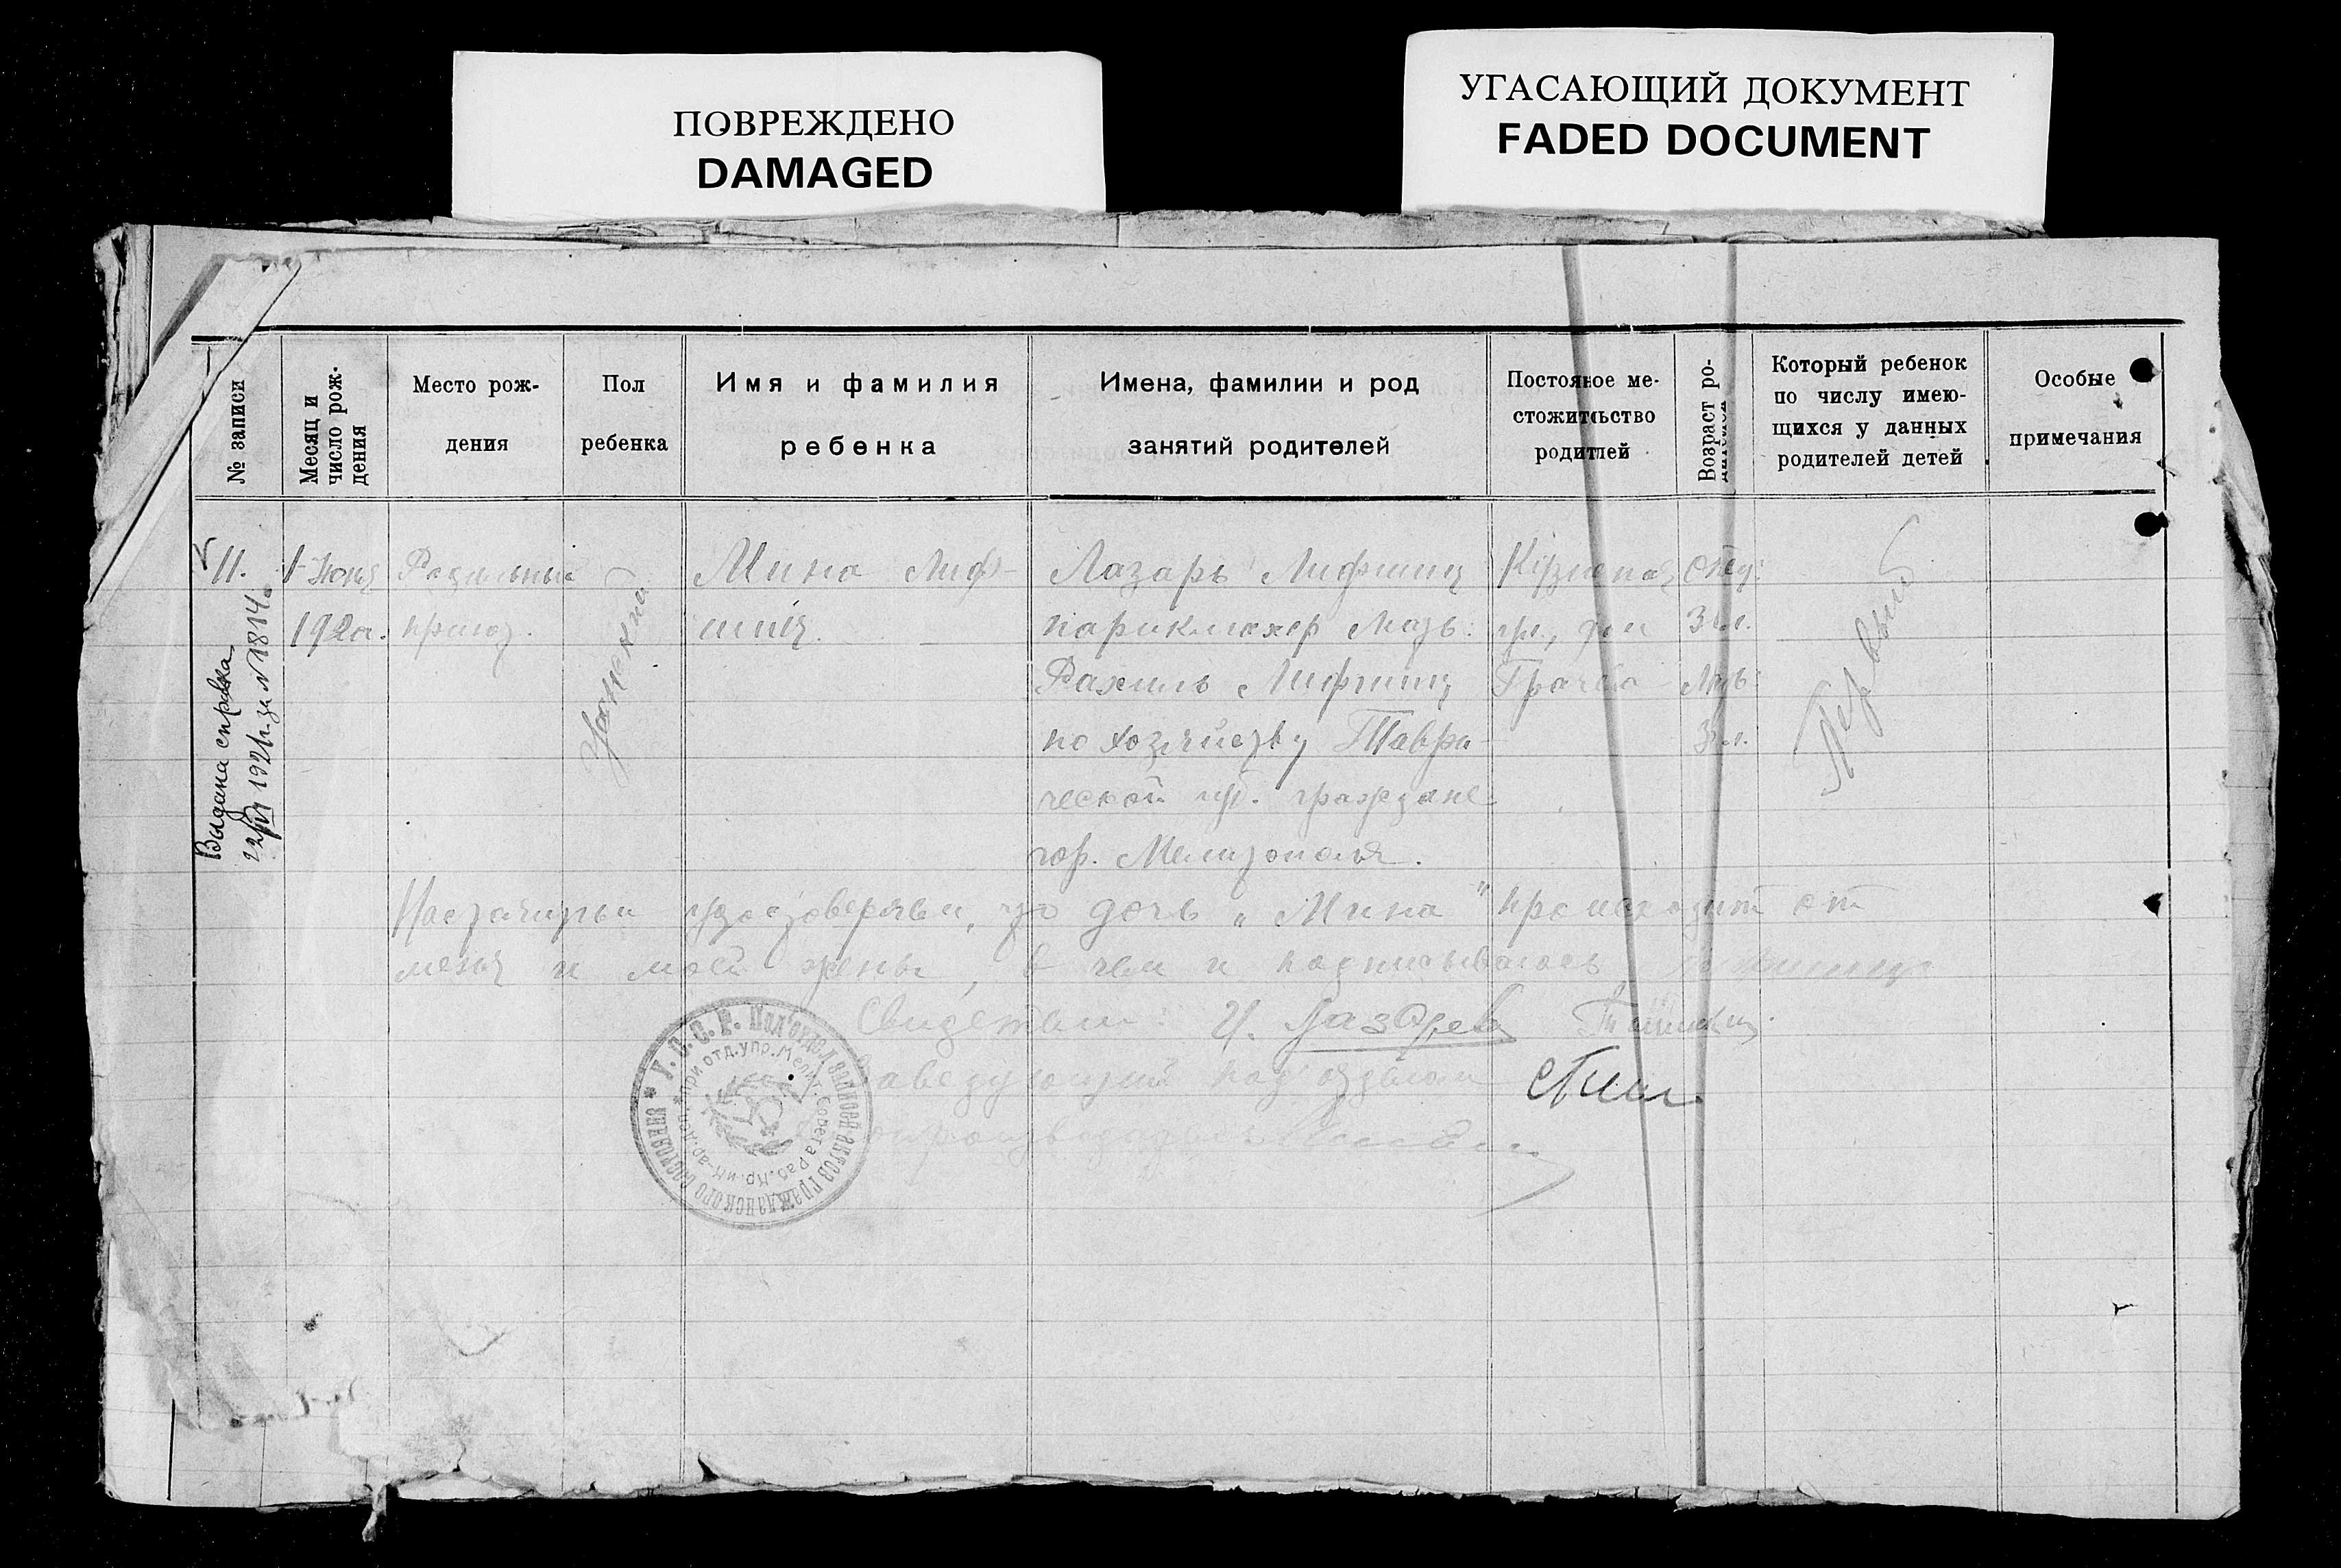 ПОВРЕЖДЕНО
DAMAGED
УГАСАЮЩИЙ ДОКУМЕНТ
FADED DOCUMENT
№ записи
Месяц и
число рож-
дения
Место рож-
дения
Пол
ребенка
Имя и фамилия
ребенка
Имена, фамилии и род
занятий родителей
Постоянное ме-
стожительство
родителей
Возраст ро-
Который ребенок
по числу имею-
щихся у данных
родителей детей
Особые
примечания
11.
1 Июня
192 г.
Родильный
приют.
Женский
Мина Лиф-
шиц.
Лазарь Лифшиц
парикмахер мать:
Рахиль Лифшиц
по хозяйству Таври-
ческой губ. граждане
гор. Мелитополя.
ул., дом
Грачева
отец:
мать:
Первый
Выдана справка
22/VI 192 г. за № 1814.
Настоящим удостоверяем, что дочь „Мина" происходит от
меня и моей жены, в чем и подписываюсь
Свидетели:
Заведующий под'отделом
У. С. С. Р. Под'отдел записей актов гражданского состояния
при отд. упр. Мелит. Совета Раб. Кр. и Кр-ар. деп.